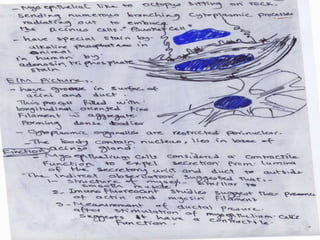 - Myoepithelial like to octopus sitting on rock.
- Sending numerous branching cytoplasmic processes
radiating out to embrace
the acinus cells - Basket cell
- Have special stain by
alkaline phosphatase in
animal
in human by
adenosin triphosphate
stain
E/M. picture:
- have groove surface of
acini and duct
- This process filled with
longitudinal oriented fine
Filament aggregate
Forming dense bodies
- Cytoplasmic organelles are restricted perinuclear.
- The body contain nucleus, lies in base of
gland
Function: Myoepithelium cells considered contractile
function expel secretion from lumen
of the secretory unit and duct to outside
- The indirect observation suggested that:
1 - Structure of similar to
smooth muscle
2 - Immunofluorescent studies suggest the presence
of actin and myosin Filament
3 - Measurement of ductal presure
after stimulation of myoepithelium cells
suggests it have a contractile
function.